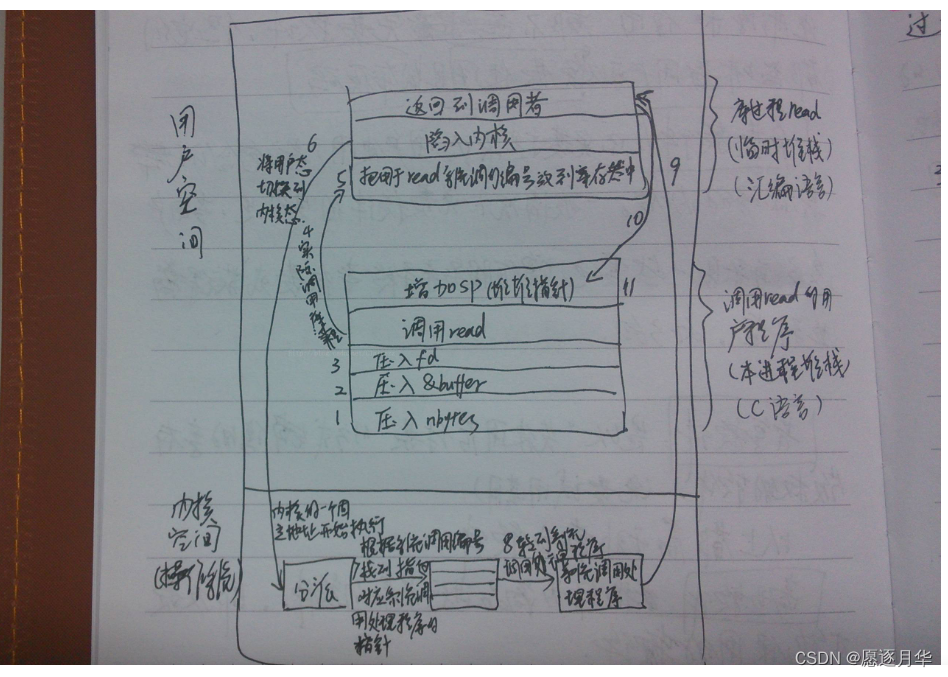 过
返回到调用者
陷入内核
把用于read系统调用编号放到寄存器中
用户空间
6
将用户态
切换到
内核态
5
4实际调用库过程
9
10
库过程read
(临时堆栈)
(汇编语言)
增加SP(堆栈指针)
11
调用read
3
压入fd
2
压入&buffer
1
压入nbytes
调用read的用
户程序
(本进程堆栈)
(C语言)
内核
空间
内核的一个固
定地址开始执行
分派
根据系统调用编号
7找到指向
对应系统调
用处理程序的
指针
8
系统调用处
理程序
CSDN @愿逐月华